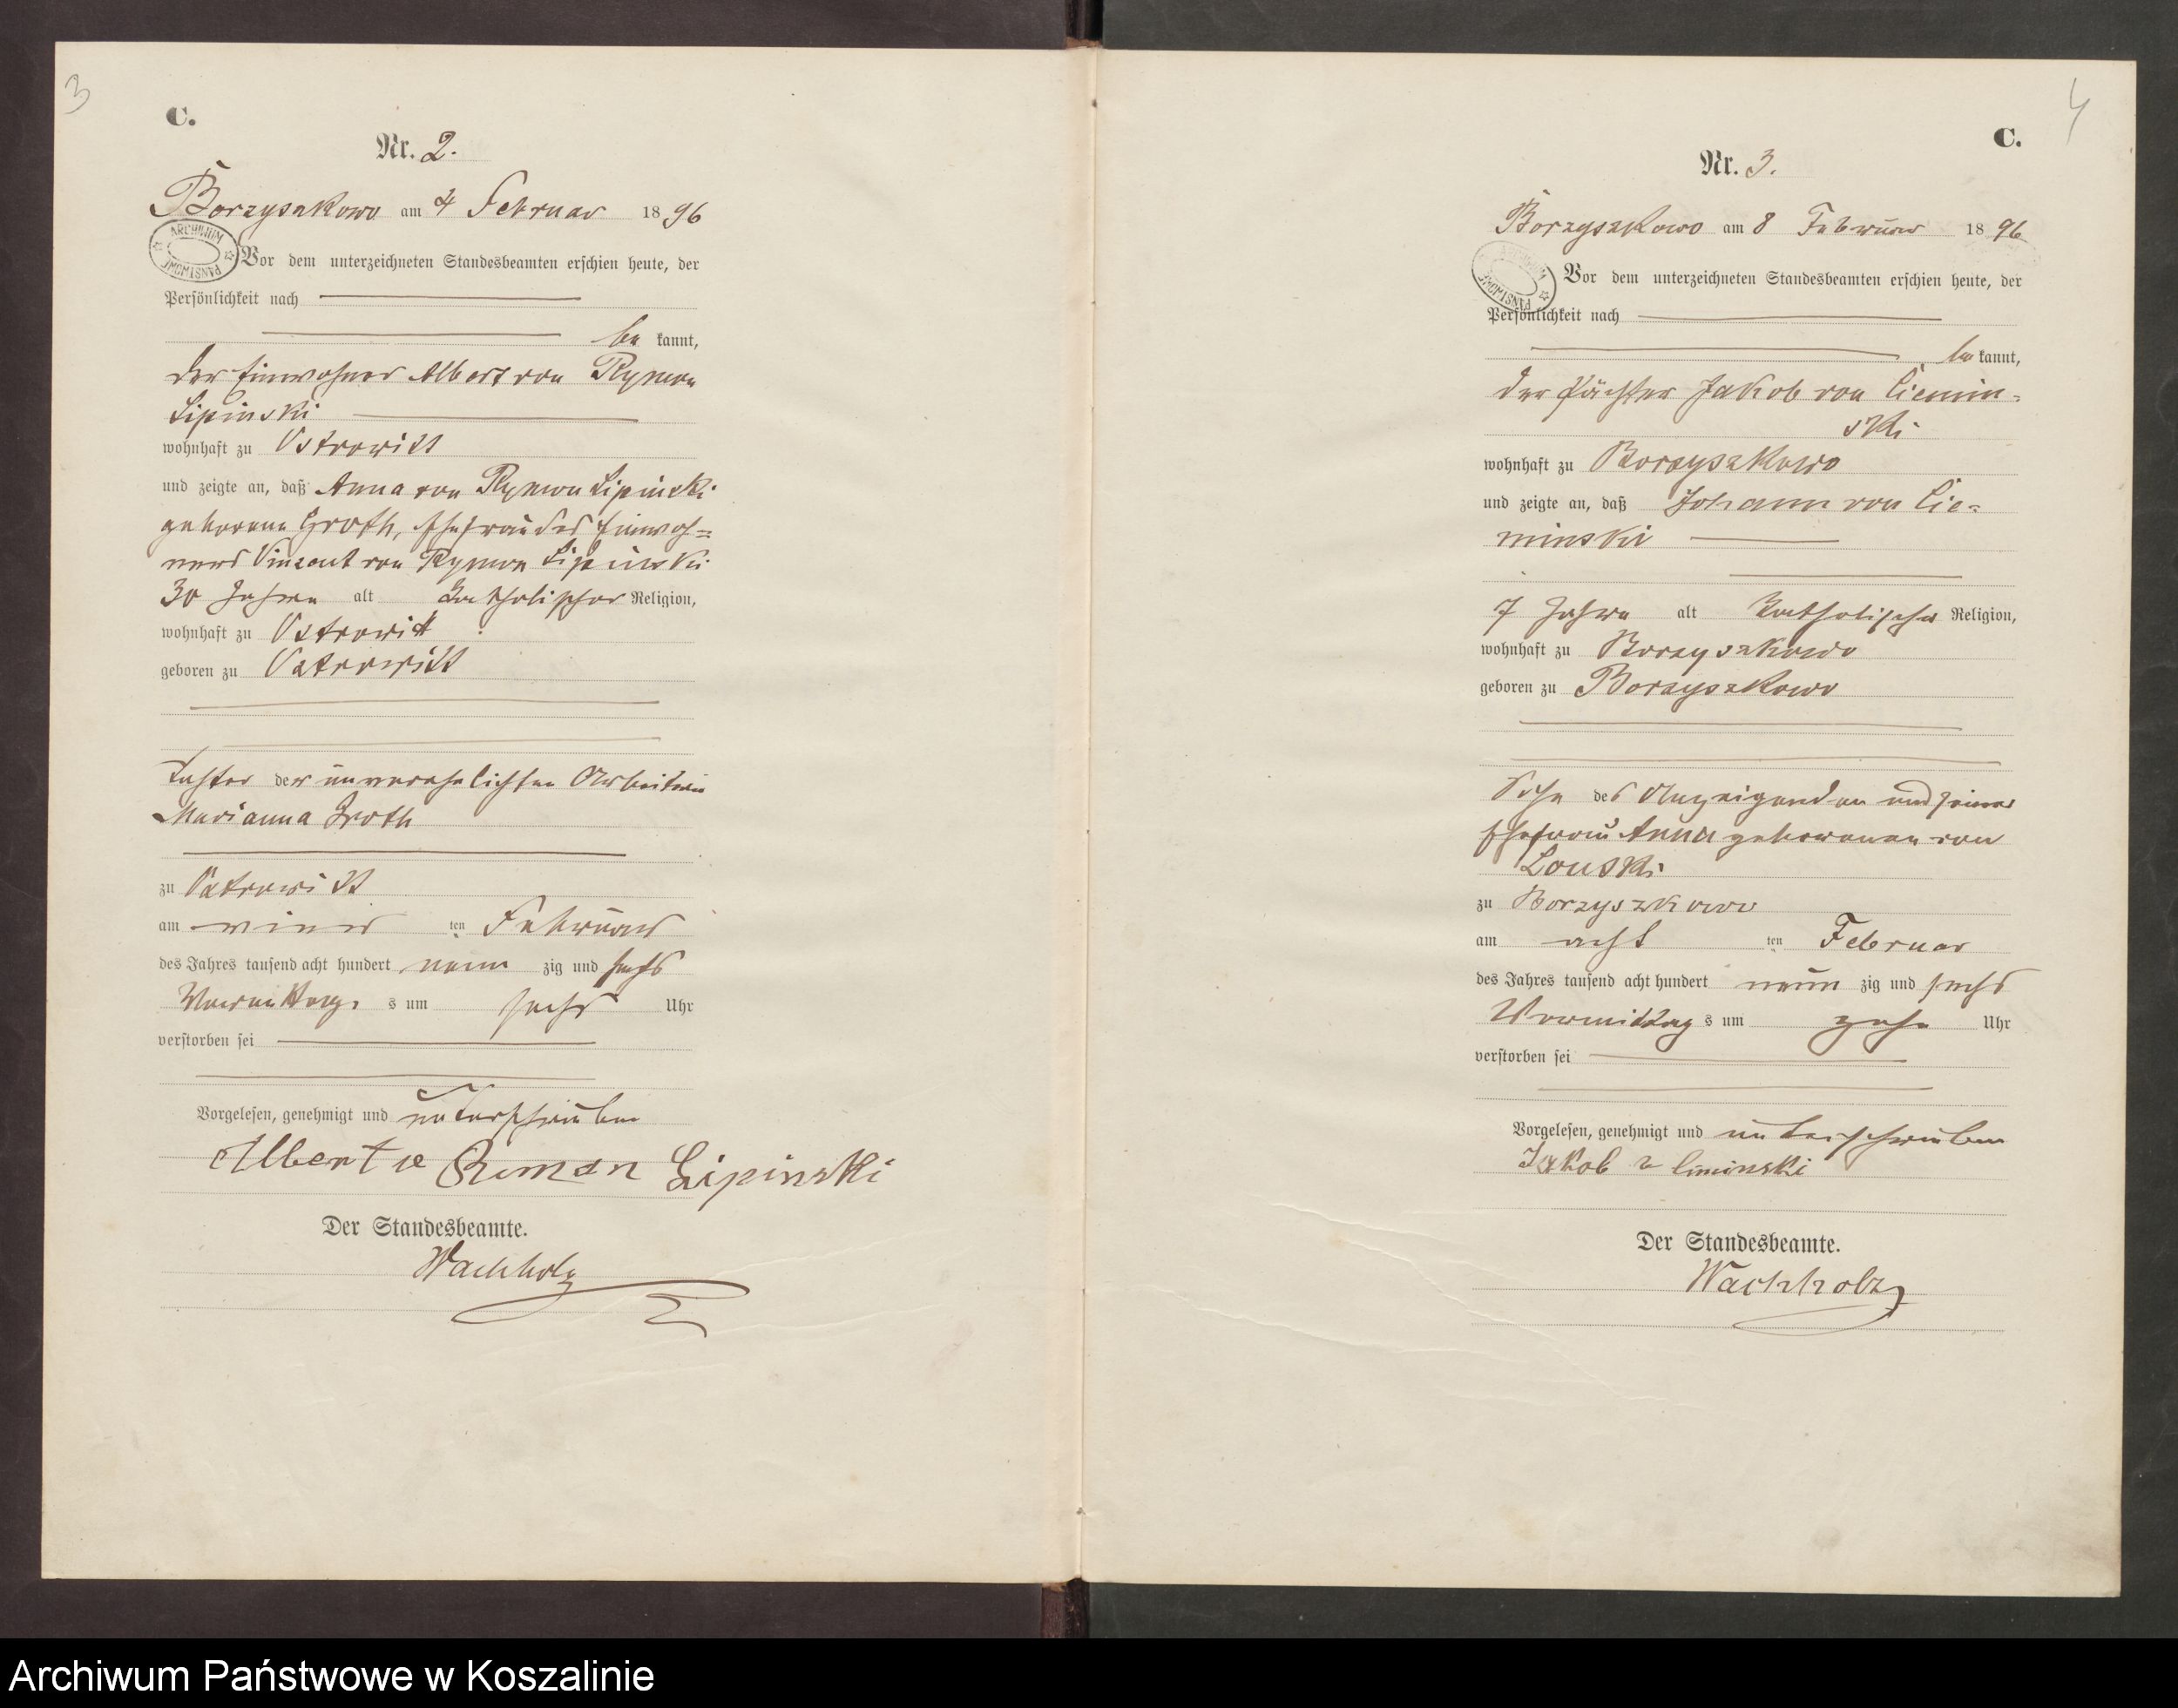 3
C.
Nr. 2.
Borzyszkowo am 4 Februar 1896
ARCHIWUM PAŃSTWOWE
Vor dem unterzeichneten Standesbeamten erschien heute, der
Persönlichkeit nach
be kannt,
der Einwohner Albert von Rymon
Lipinski
wohnhaft zu Ostrowitt
und zeigte an, daß Anna von Rymon Lipinski
geborene Groth, Ehefrau des Einwoh=
ners Vinzent von Rymon Lipinski
30 Jahren alt katholischer Religion,
wohnhaft zu Ostrowitt
geboren zu Ostrowitt
Tochter der unverehelichten Arbeiterin
Marianna Groth
zu Ostrowitt
am vier ten Februar
des Jahres tausend acht hundert neun zig und sechs
s um sechs Uhr
verstorben sei
Vorgelesen, genehmigt und unterschrieben
Albert Lipinski
Der Standesbeamte.
Wachholz
4
C.
Nr. 3.
Borzyszkowo am 8 Februar 1896
ARCHIWUM PAŃSTWOWE
Vor dem unterzeichneten Standesbeamten erschien heute, der
Persönlichkeit nach
be kannt,
der Pächter Jakob von Ciemin=
ski
wohnhaft zu Borzyszkowo
und zeigte an, daß Johann von Cie=
minski
7 Jahre alt katholischer Religion,
wohnhaft zu Borzyszkowo
geboren zu Borzyszkowo
Sohn des Anzeigenden und seiner
Ehefrau Anna geborenen von
Lonski
zu Borzyszkowo
am acht ten Februar
des Jahres tausend acht hundert neun zig und sechs
Vormittag s um zehn Uhr
verstorben sei
Vorgelesen, genehmigt und unterschrieben
Jakob v Cminski
Der Standesbeamte.
Wachholz
Archiwum Państwowe w Koszalinie